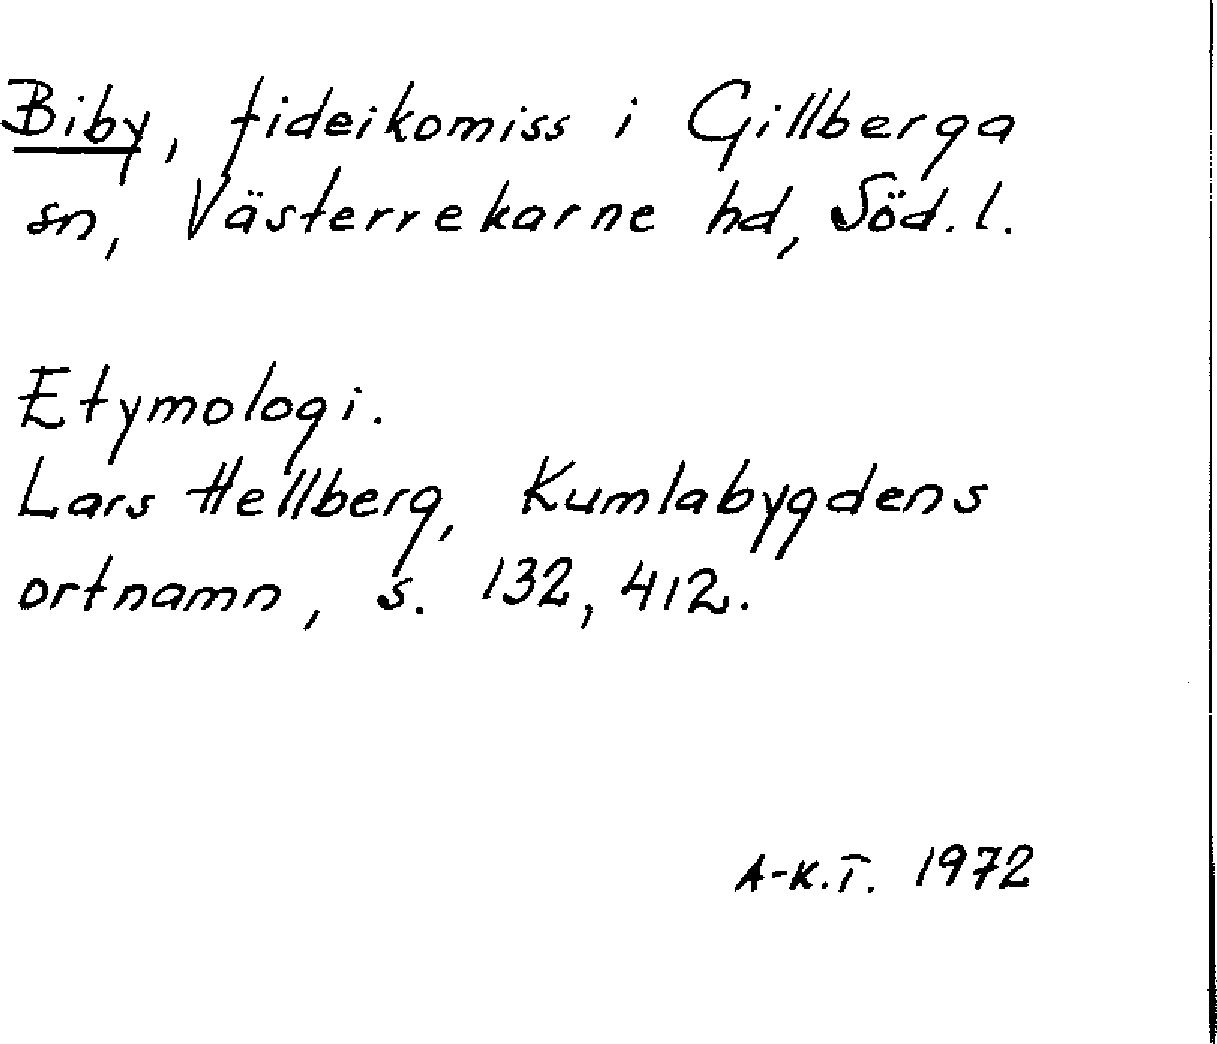 Biby, fideikomiss i Gillberga
sn, Västerrekarne hd, Söd.l.
Etymologi.
Lars Hellberg, Kumlabygdens
ortnamn, s. 132, 412.
A-K.T. 1972